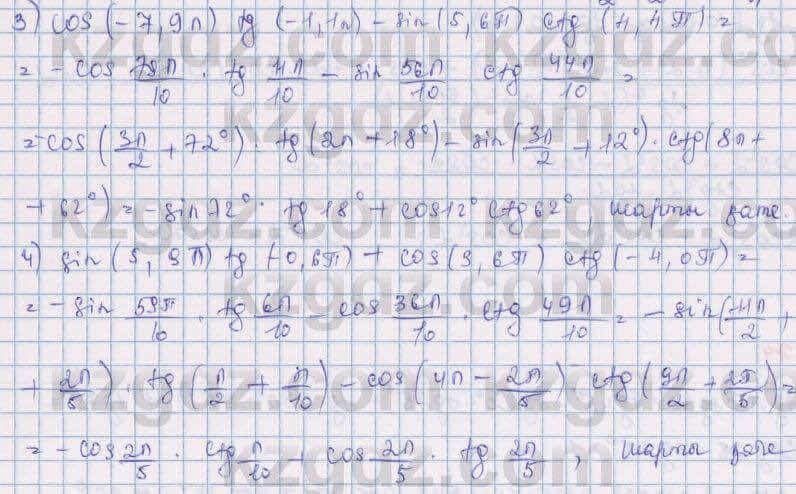 3) cos (-7,9π) tg (-1,1π) - sin (5,6π) ctg (4,4π) =
= - cos 79π/10 · tg 11π/10 - sin 56π/10 ctg 44π/10 =
= -cos (3π/2 + 72°) · tg (2π + 18°) - sin (3π/2 + 12°) · ctg (8π +
+ 62°) = - sin 72° · tg 18° + cos 12° ctg 62°, шарты қате.
4) sin (5,9π) tg (-0,6π) + cos (3,6π) ctg (-4,9π) =
= - sin 59π/10 · tg 6π/10 - cos 36π/10 · ctg 49π/10 = - sin (11π/2 +
+ 2π/5) · tg (π/2 + π/10) - cos (4π - 2π/5) ctg (9π/2 + 2π/5) =
= - cos 2π/5 · ctg π/10 + cos 2π/5 · tg 2π/5, шарты қате
kzgdz.com